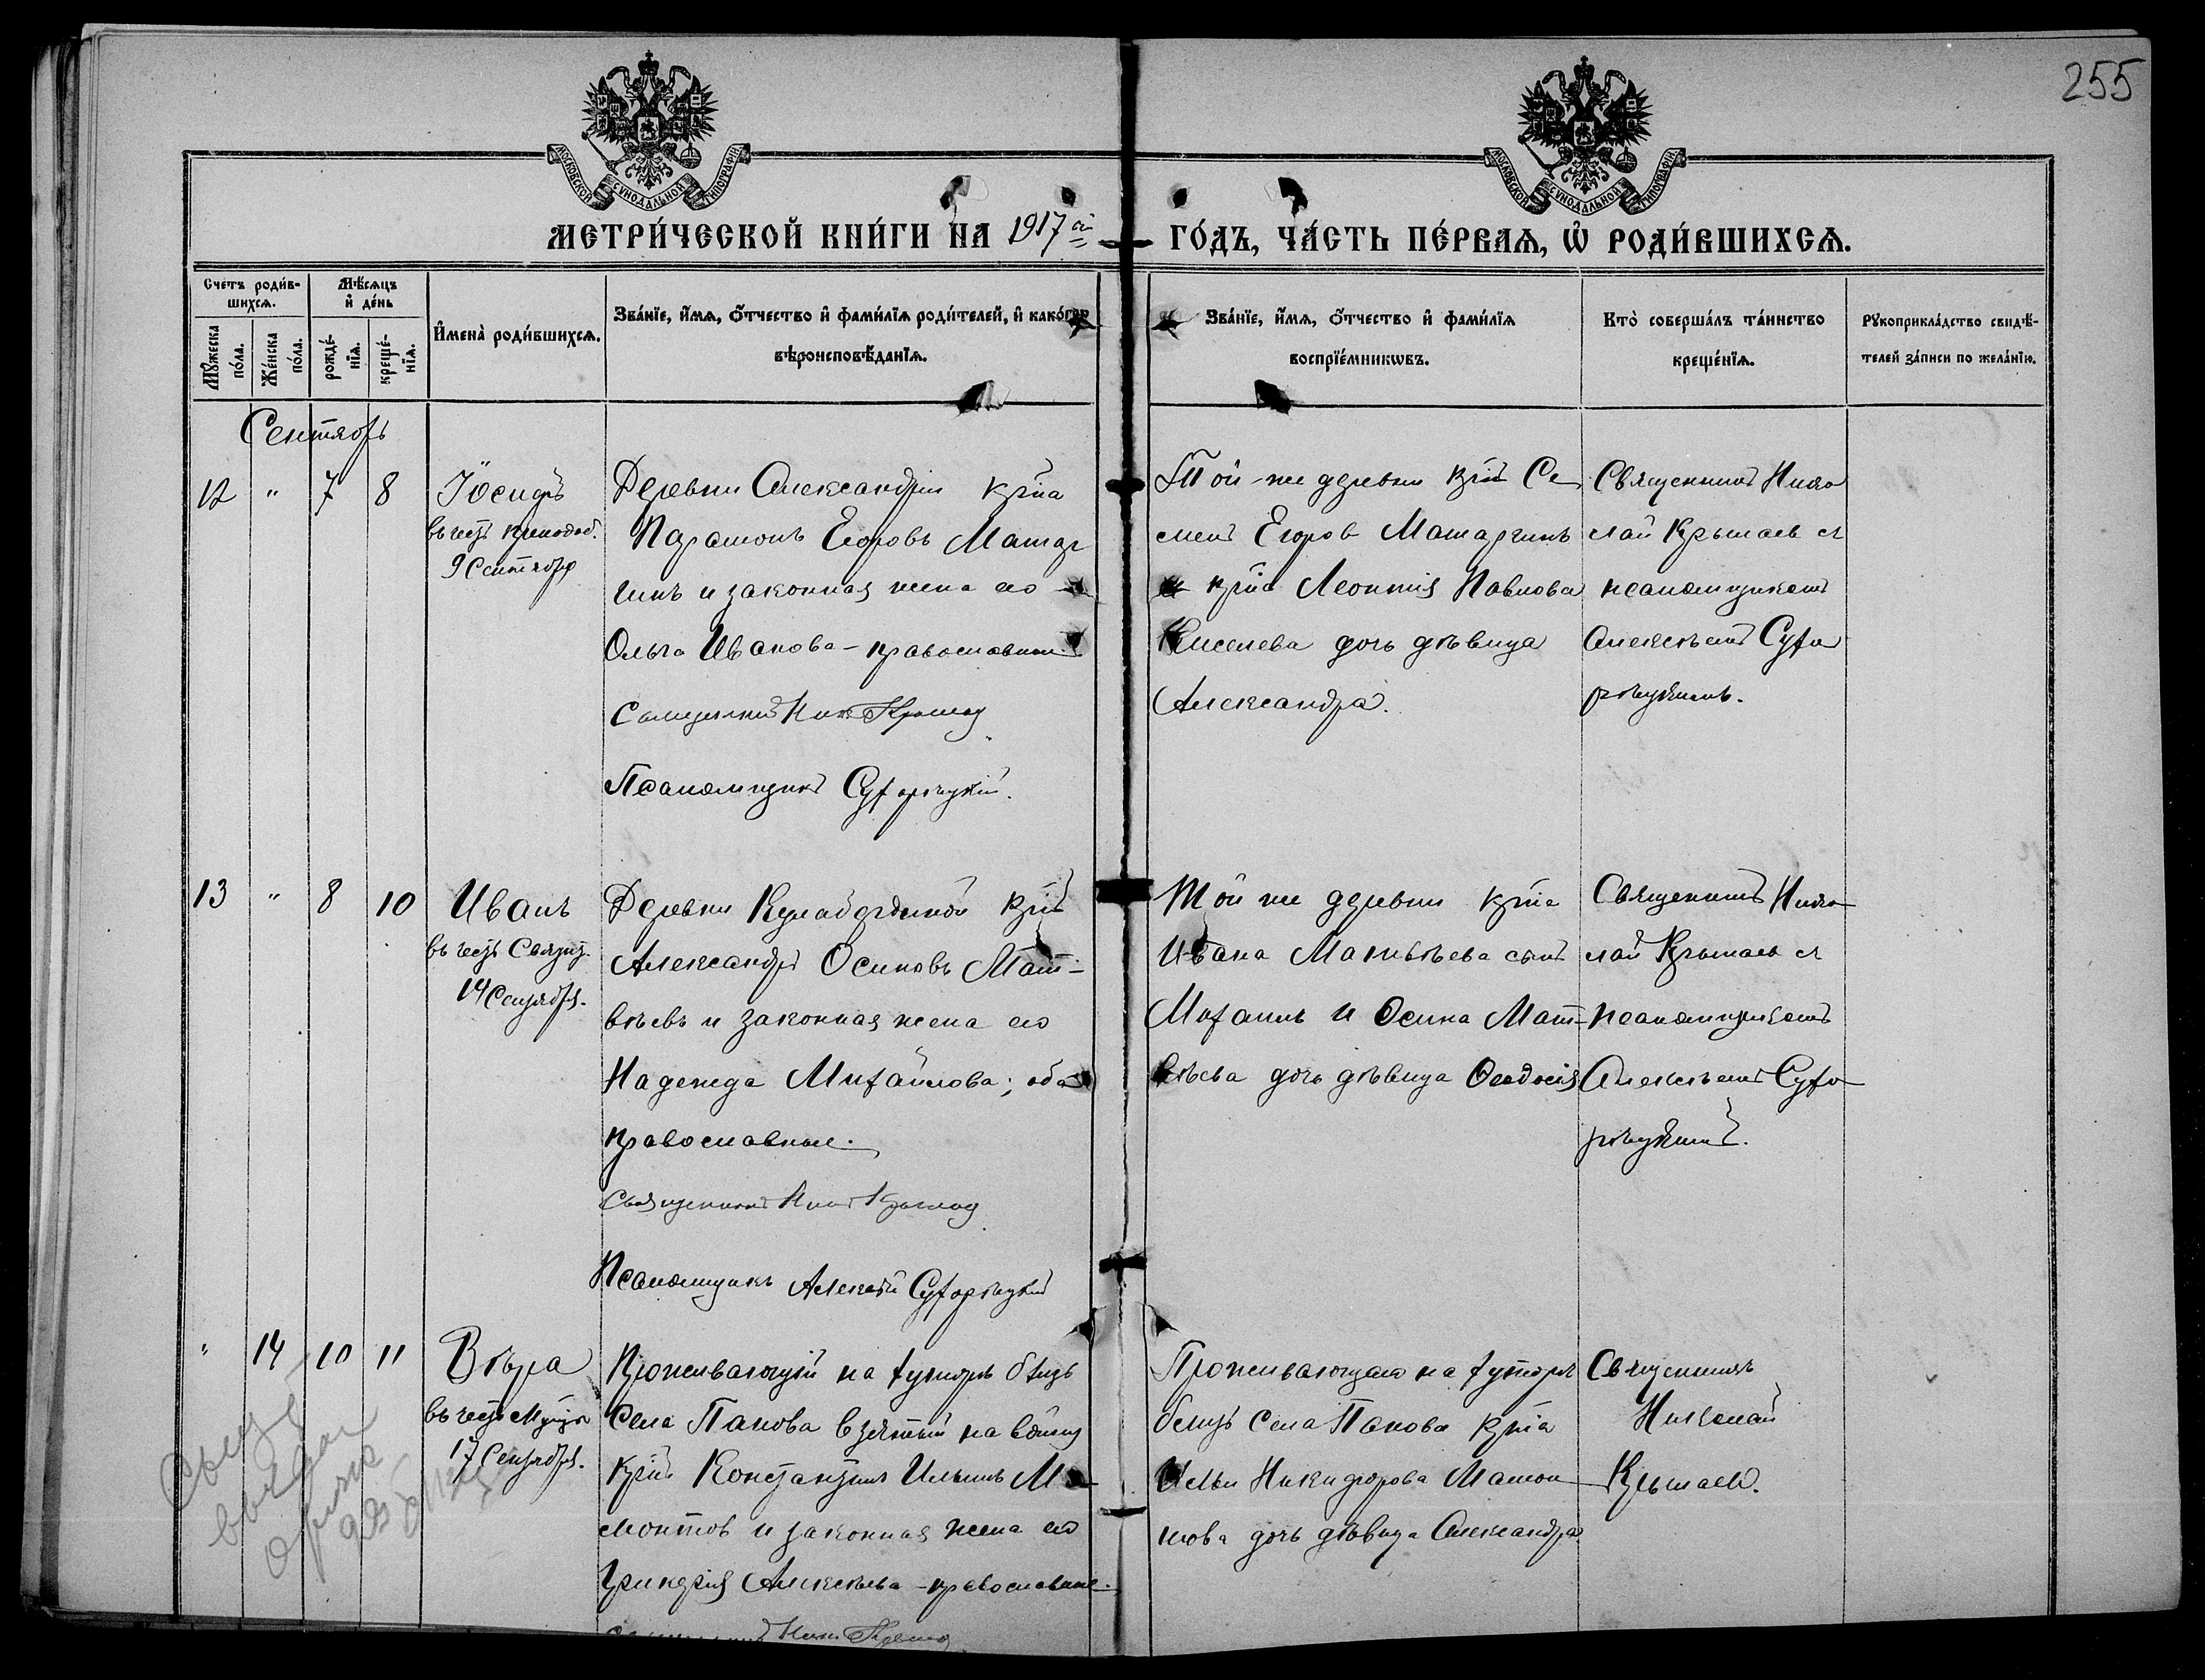 255
МОСКОВСКОЙ СѴНОДАЛЬНОЙ ТИПОГРАФІИ
МОСКОВСКОЙ СѴНОДАЛЬНОЙ ТИПОГРАФІИ
МЕТРИ́ЧЕСКОЙ КНИ́ГИ НА 1917 й ГО́ДЪ, ЧА́СТЬ ПЕ́РВАѦ, Ѡ҆ РОДИ́ВШИХСѦ.
Сче́тъ роди́в-
шихсѧ.
Мꙋ́жеска по́ла.
Же́нска по́ла.
Мѣ́сѧцъ
и҆ де́нь
рожде́-
нїѧ.
креще́-
нїѧ.
И҆мена̀ роди́вшихсѧ.
Зва́нїе, и҆́мѧ, о҆́тчество и҆ фами́лїѧ роди́телей, и҆ како́гѡ
вѣроисповѣ́данїѧ.
Зва́нїе, и҆́мѧ, о҆́тчество и҆ фами́лїѧ
воспрїе́мникѡвъ.
Кто̀ соверша́лъ та́инство
креще́нїѧ.
Рꙋкоприкла́дство свидѣ́-
телей за́писи по жела́нїю.
Сентябрь
12 " 7 8
Іосифъ
въ честь преподоб.
9 Сентября
Деревни Александріи кр-на
Парамонъ Егоровъ Матар
гинъ и законная жена его
Ольга Иванова - православные.
Священникъ Ник. Крылов
Псаломщикъ Суфорецкій.
Той-же деревни кр-нъ Се
менъ Егоров Матаргинъ
и кр-на Леонтія Павлова
Киселева дочь дѣвица
Александра.
Священникъ Нико
лай Крылаев съ
псаломщикомъ
Алексѣемъ Суфо
рѣцкимъ.
13 " 8 10
Иванъ
въ честь Святит.
14 Сентября.
Деревни кр-нъ
Александръ Осиповъ Мат-
вѣевъ и законная жена его
Надежда Михайлова; оба
православные.
Священникъ Ник.
Псаломщикъ Алексѣй Суфорѣцкій
Той же деревни кр-на
Ивана Матвѣева сынъ
Михаилъ и Осипа Мат-
вѣева дочь дѣвица Ѳеодосія
Священникъ Нико
лай Крылаев съ
псаломщикомъ
Алексѣемъ Суфо-
рѣцкимъ.
" 14 10 11
Вѣра
въ честь Муч-цы
17 Сентября.
Проживающій на хуторѣ близъ
Села Панова взятый на войну
кр-нъ Константинъ Ильинъ Ма
монтов и законная жена его
Алексѣева - православные.
Проживающаго на хуторѣ
близъ Села Панова кр-на
Ильи Никифорова Мамон
това дочь дѣвица Александра
Священникъ
Николай